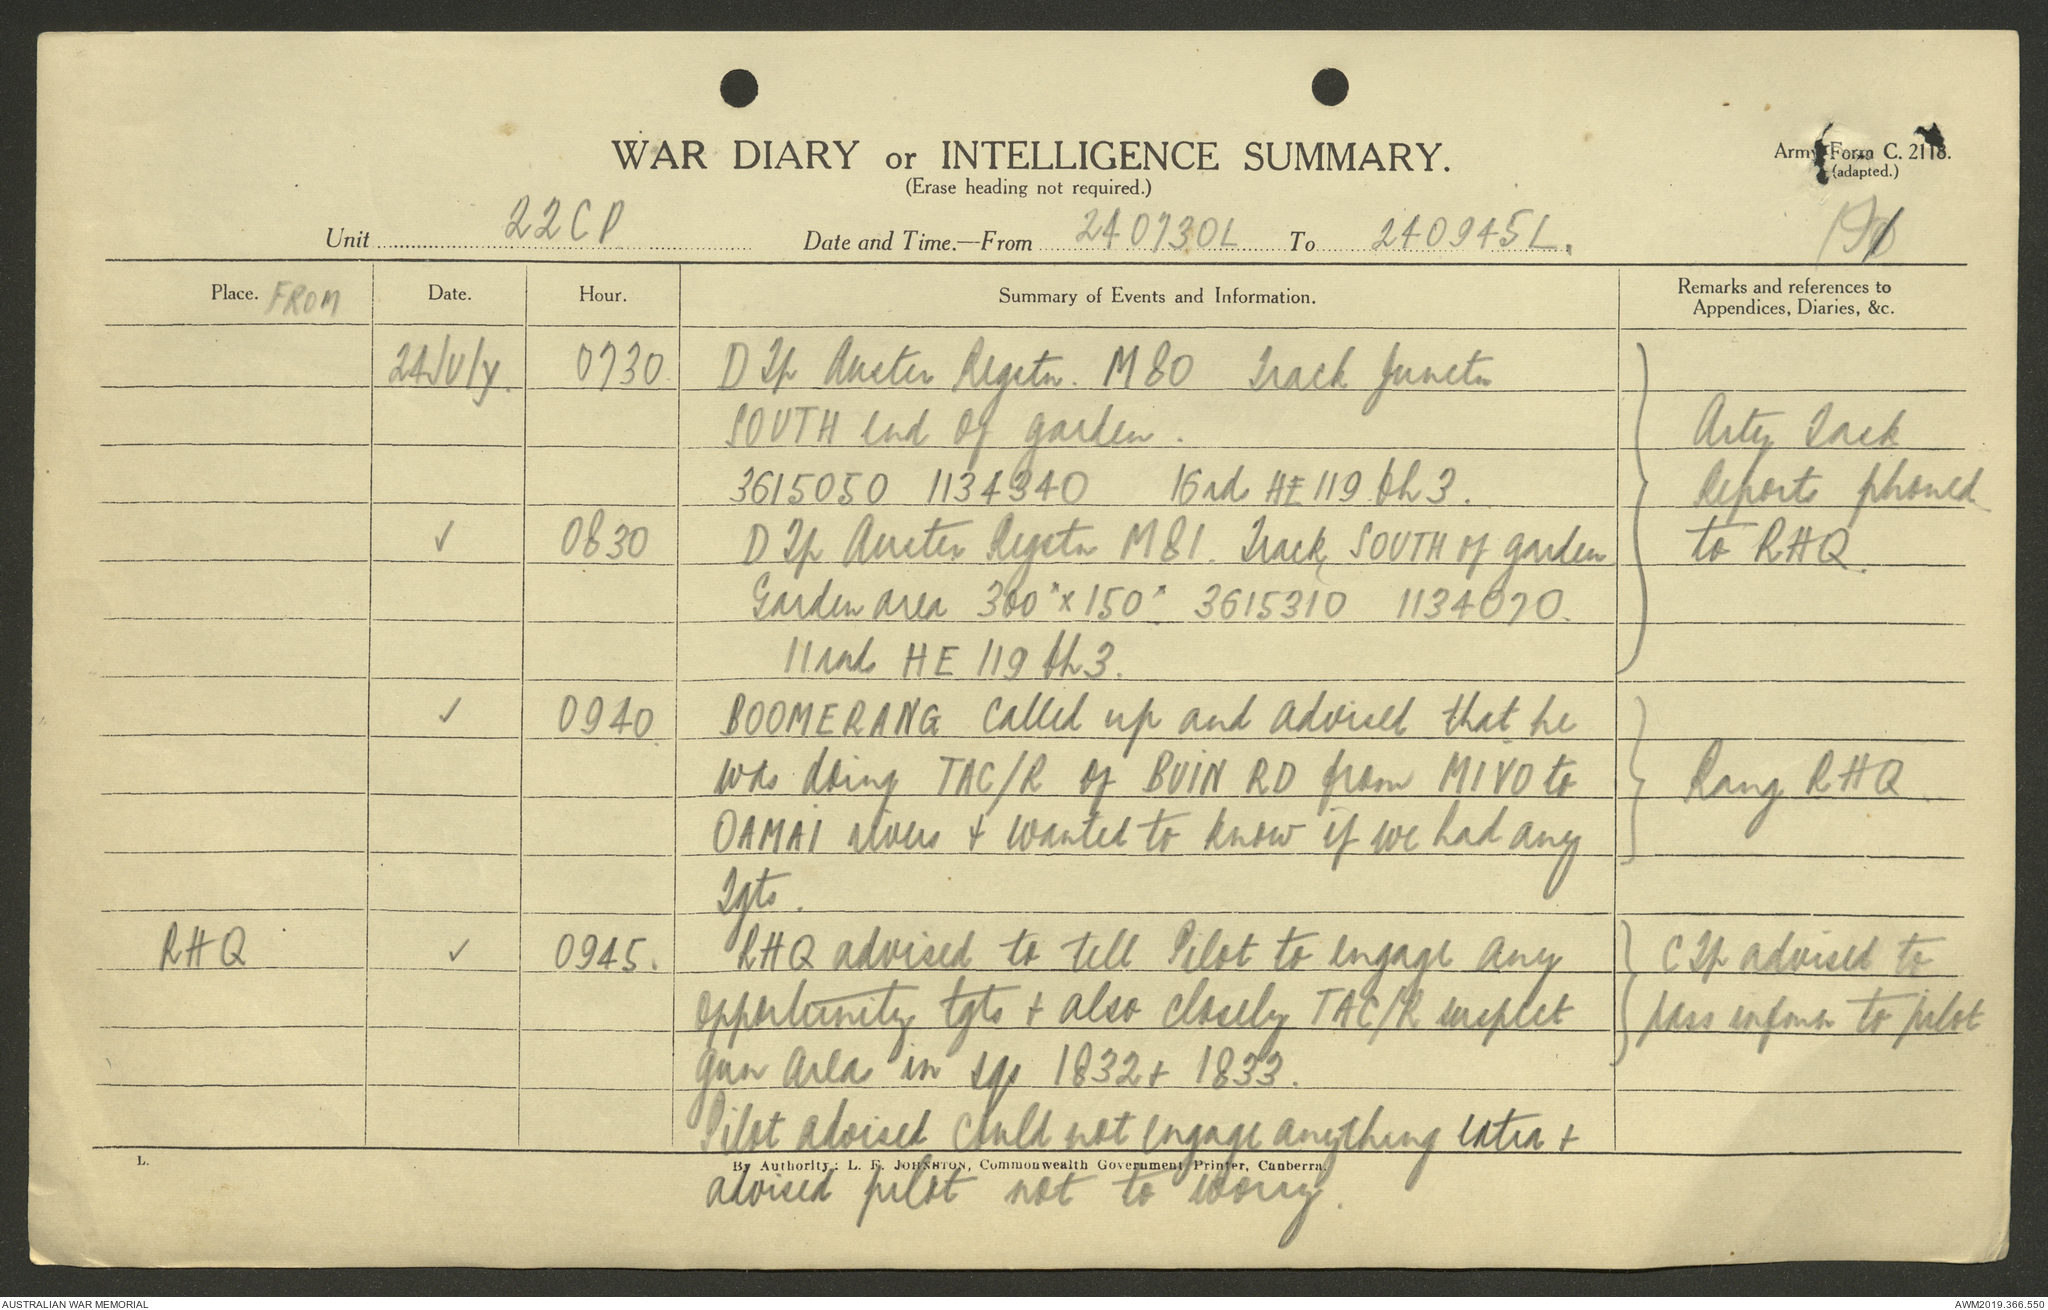 WAR DIARY or INTELLIGENCE SUMMARY.
(Erase heading not required.)
Army Form C. 2118.
(adapted.)
Unit 22CP Date and Time.—From 240730L To 240945L.
Place. FROM Date. Hour. Summary of Events and Information. Remarks and references to Appendices, Diaries, &c.
24 July. 0730 D Tp Auster Regstn. M80 Track Junctn
SOUTH end of garden. Arty Task
3615050 1134340 16 rds HE 119 ch 3. Reports phoned
✓ 0830 D Tp Auster Regstn M81. Track SOUTH of garden to RHQ.
Garden area 300ˣ x 150ˣ 3615310 1134070.
11 rds HE 119 ch 3.
✓ 0940 BOOMERANG called up and advised that he
was doing TAC/R of BUIN RD from MIVO to Rang RHQ
OAMAI rivers + wanted to know if we had any
Tgts.
RHQ ✓ 0945. RHQ advised to tell Pilot to engage any C Tp advised to
opportunity tgts + also closely TAC/R suspect pass informn to pilot
gun areas in sqs 1832 + 1833.
Pilot advised could not engage anything extra +
L. By Authority: L. F. JOHNSTON, Commonwealth Government Printer, Canberra.
advised pilot not to worry.
AUSTRALIAN WAR MEMORIAL AWM2019.366.550